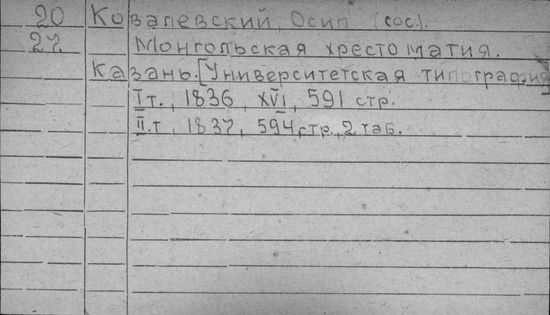 20 Ковалевский, Осип (сос).
27. Монгольская хрестоматия.
Казань. [Университетская типография
I т., 1836, XVI, 591 стр.
II.т, 1837, 594 стр., 2 таб.